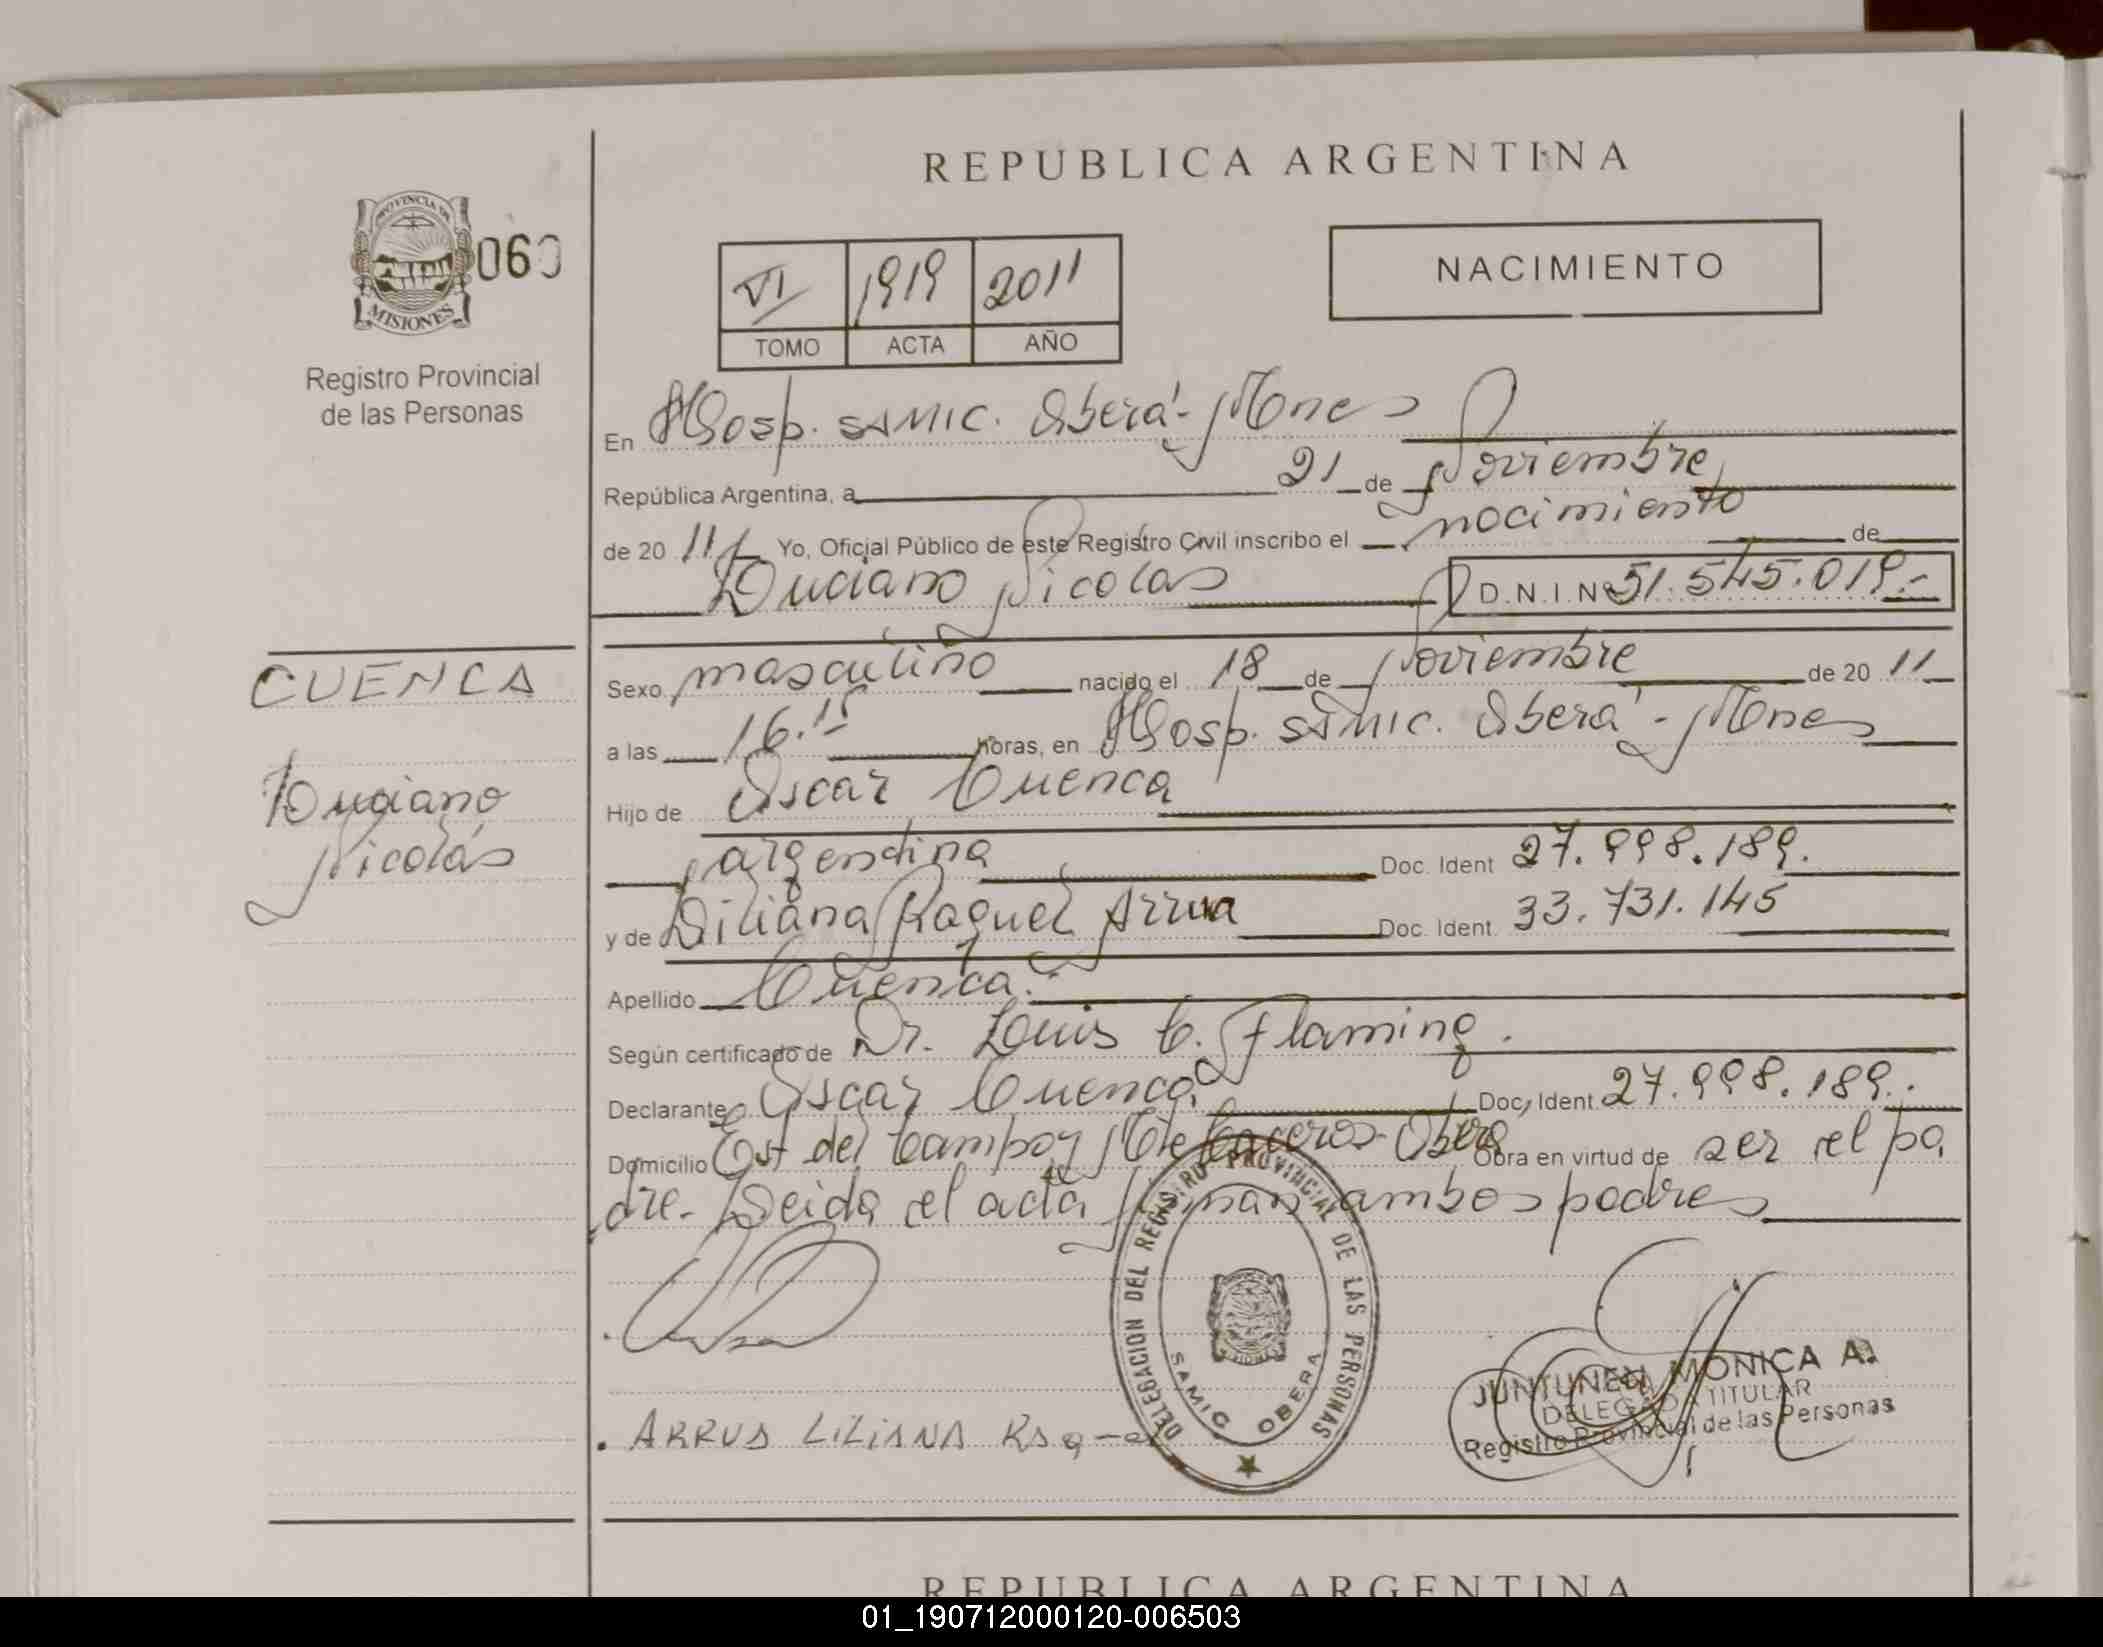 REPUBLICA ARGENTINA
PROVINCIA DE
MISIONES
060
Registro Provincial
de las Personas
VI 1919 2011
TOMO ACTA AÑO
NACIMIENTO
En Hosp. SAMIC. Oberá - Mnes
República Argentina, a 21 de Noviembre
de 20 11 Yo, Oficial Público de este Registro Civil inscribo el nacimiento de
Luciano Nicolas D.N.I. Nº 51.545.019.-
CUENCA
Luciano
Nicolás
Sexo masculino nacido el 18 de Noviembre de 20 11
a las 16.15 horas, en Hosp. SAMIC. Oberá - Mnes
Hijo de Oscar Cuenca
argentina Doc. Ident 27.998.189.
y de Liliana Raquel Arrua Doc. Ident. 33.731.145
Apellido Cuenca.
Según certificado de Dr. Luis C. Flaming.
Declarante Oscar Cuenca Doc. Ident. 27.998.189.
Domicilio Ext del Campo y Oberá Obra en virtud de ser el pa
dre. Leida el acta firman ambos padres
DELEGACION DEL REGISTRO PROVINCIAL DE LAS PERSONAS
SAMIC OBERA
ARRUA LILIANA Raquel
JUNTUNEN, MONICA A.
DELEGADA TITULAR
Registro Provincial de las Personas
REPUBLICA ARGENTINA
01_190712000120-006503